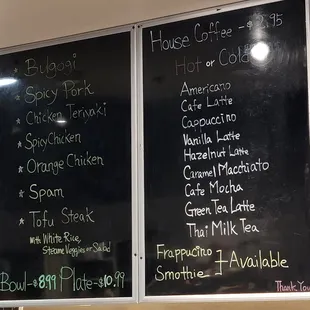 * Bulgogi
* Spicy Pork
* Chicken Teriyaki
* Spicy Chicken
* Orange Chicken
* Spam
* Tofu Steak
with White Rice,
Steame Veggies or Salad
Bowl-$8.99 Plate-$10.99
House Coffee - $2.95
Hot or Cold
Americano
Cafe Latte
Cappuccino
Vanilla Latte
Hazelnut Latte
Caramel Macchiato
Cafe Mocha
Green Tea Latte
Thai Milk Tea
Frappuccino
Smothie
Available
Thank You